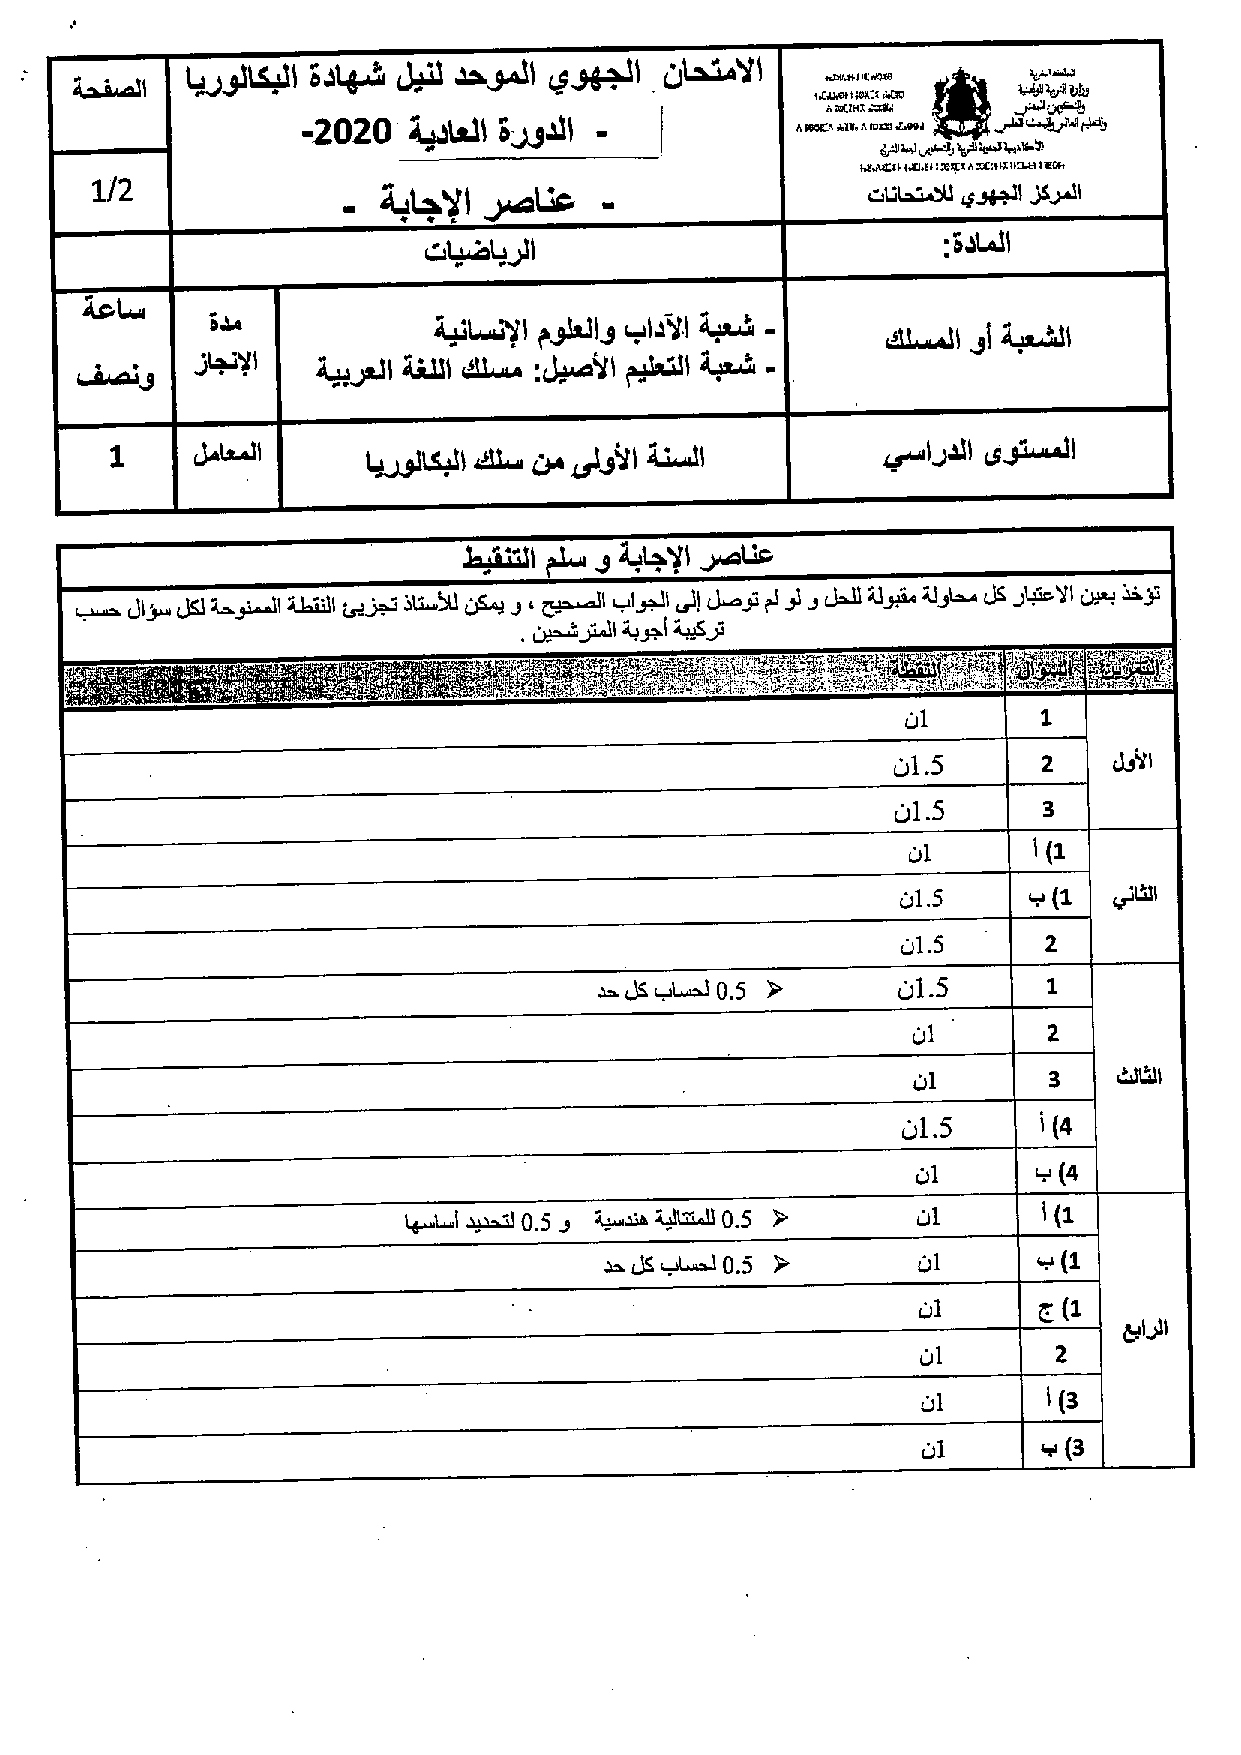 الصفحة
1/2
الامتحان الجهوي الموحد لنيل شهادة البكالوريا
- الدورة العادية 2020-
- عناصر الإجابة -
المملكة المغربية
وزارة التربية الوطنية
والتكوين المهني
والتعليم العالي والبحث العلمي
الأكاديمية الجهوية للتربية والتكوين لجهة الشرق
المركز الجهوي للامتحانات
المادة:
الرياضيات
الشعبة أو المسلك
- شعبة الآداب والعلوم الإنسانية
- شعبة التعليم الأصيل: مسلك اللغة العربية
مدة الإنجاز
ساعة ونصف
المستوى الدراسي
السنة الأولى من سلك البكالوريا
المعامل
1
عناصر الإجابة و سلم التنقيط
تؤخذ بعين الاعتبار كل محاولة مقبولة للحل و لو لم توصل إلى الجواب الصحيح ، و يمكن للأستاذ تجزيئ النقطة الممنوحة لكل سؤال حسب
تركيبة أجوبة المترشحين .
التمرين السؤال النقطة
الأول
1 1ن
2 1.5ن
3 1.5ن
الثاني
1) أ 1ن
1) ب 1.5ن
2 1.5ن
الثالث
1 1.5ن ➢ 0.5 لحساب كل حد
2 1ن
3 1ن
4) أ 1.5ن
4) ب 1ن
الرابع
1) أ 1ن ➢ 0.5 للمتتالية هندسية و 0.5 لتحديد أساسها
1) ب 1ن ➢ 0.5 لحساب كل حد
1) ج 1ن
2 1ن
3) أ 1ن
3) ب 1ن